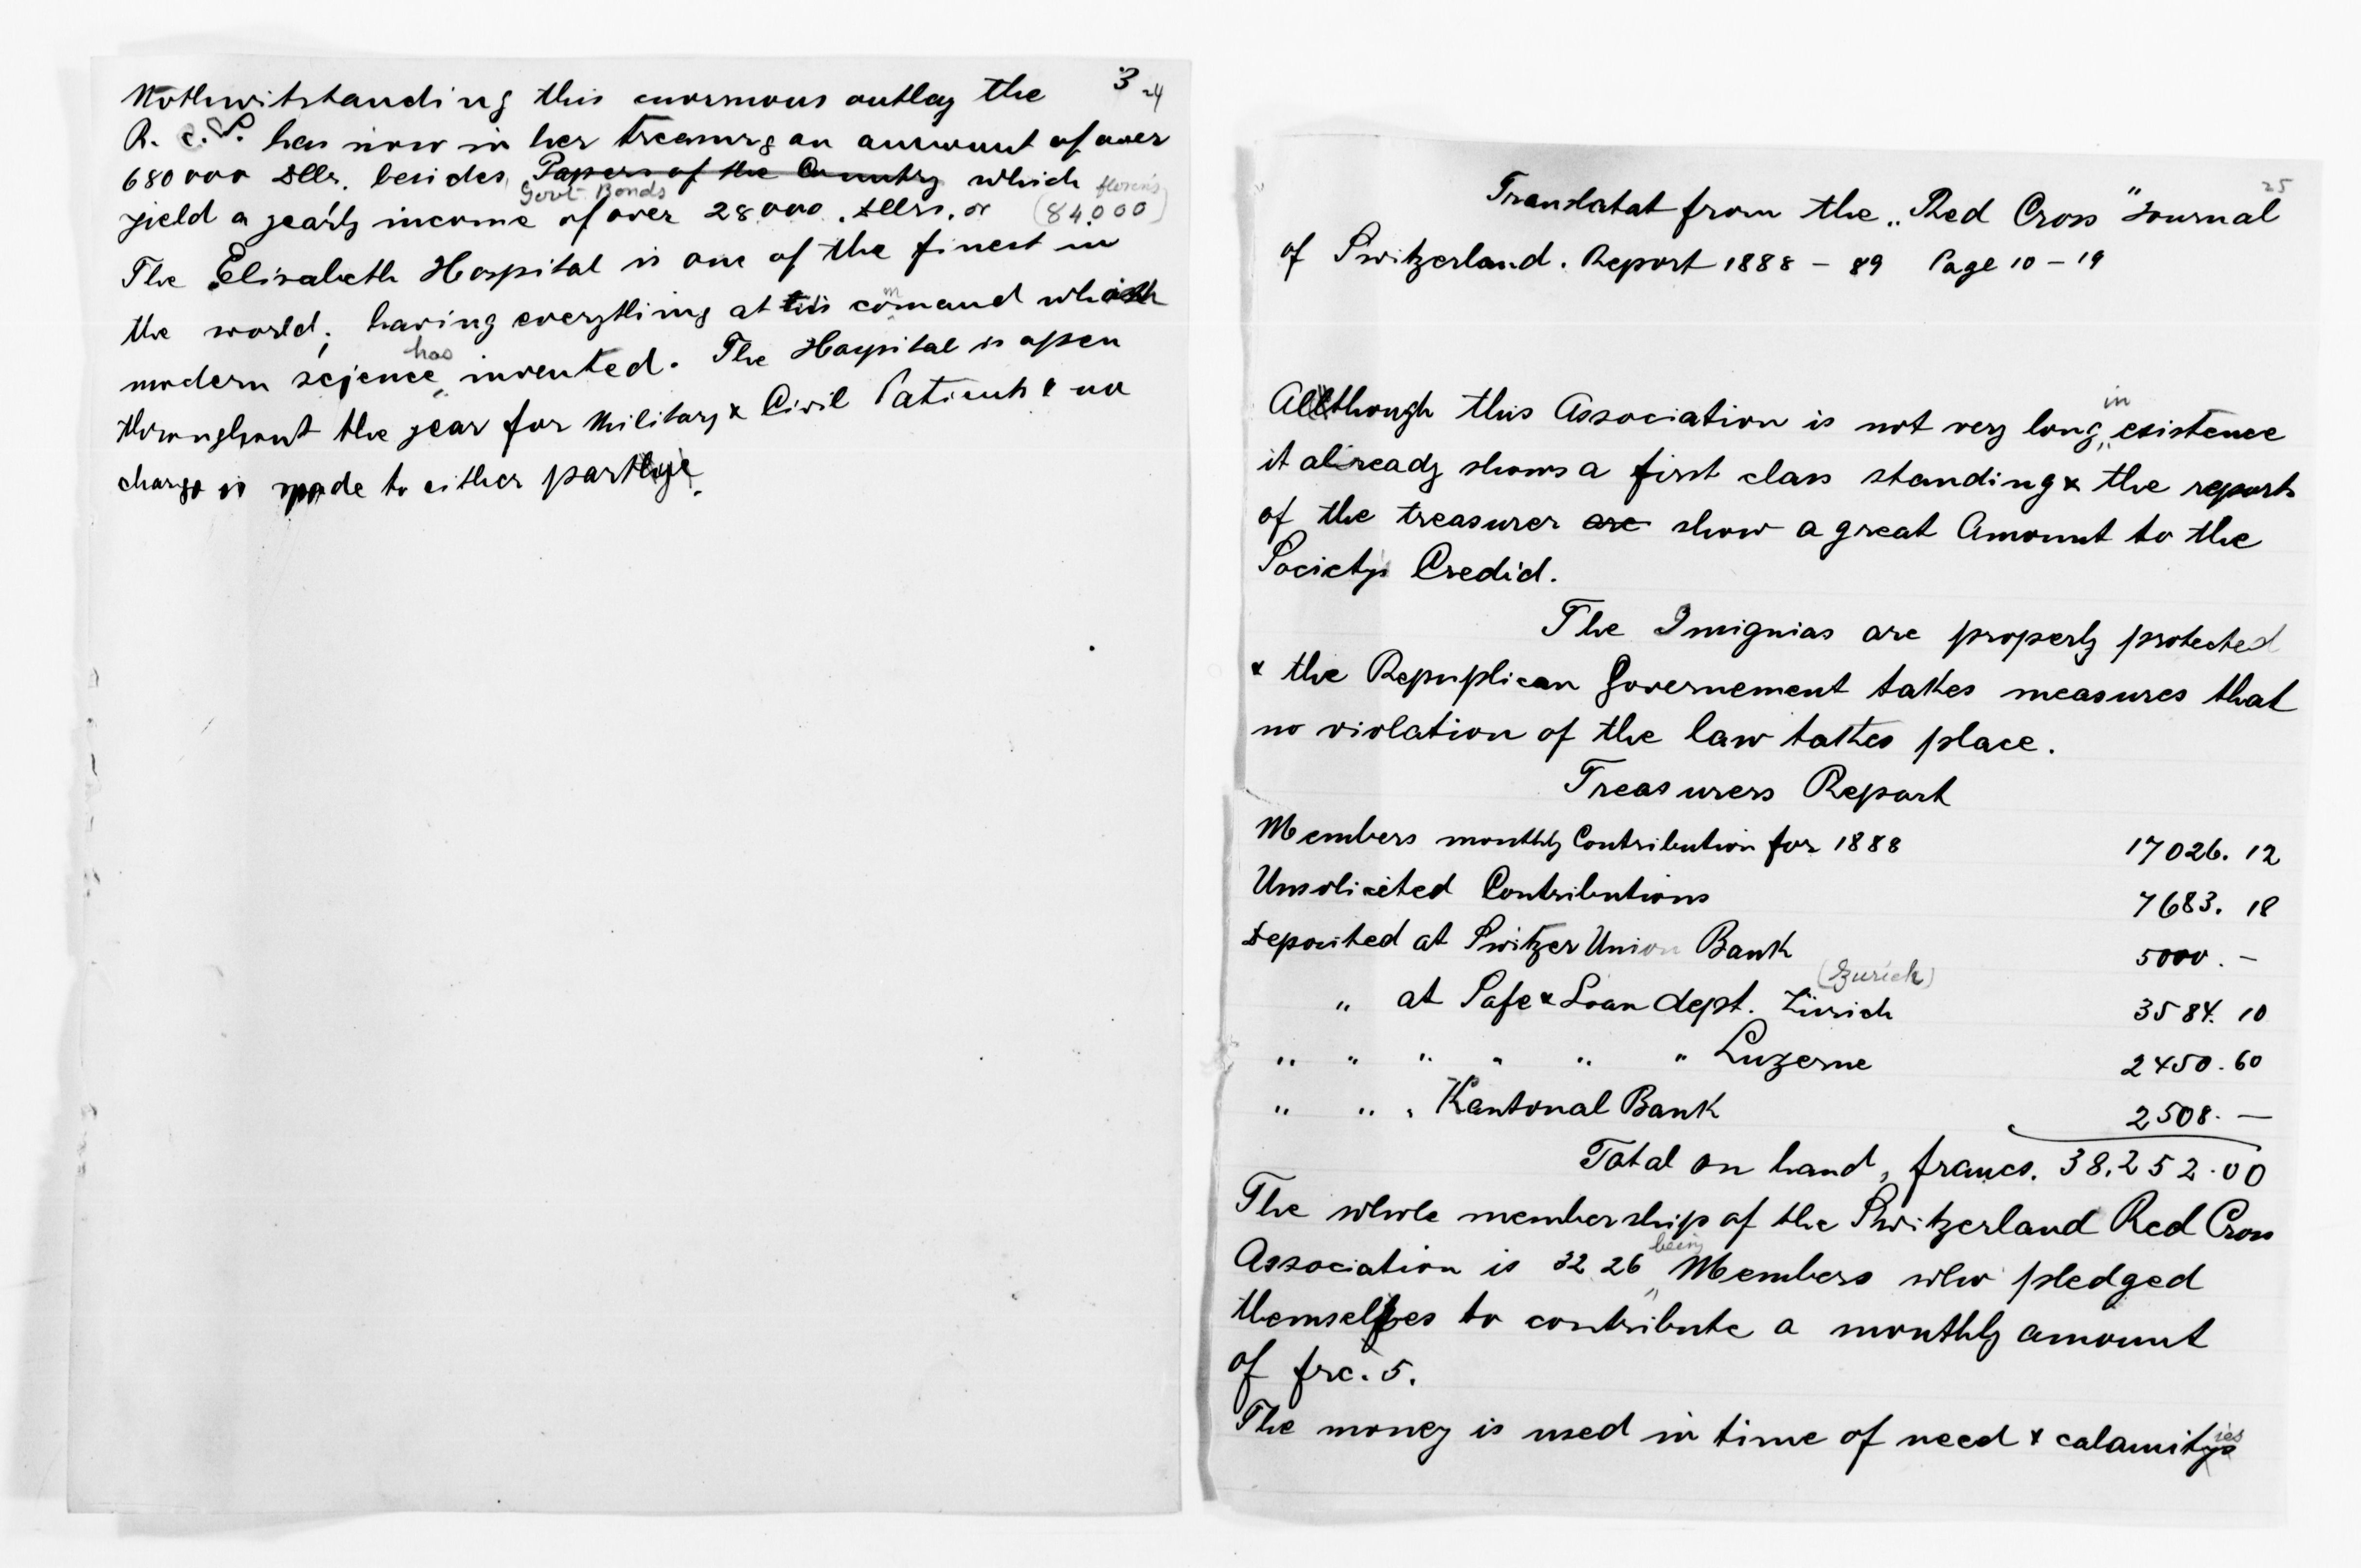 3 24
Nothwithstanding this enormous outlay the
R. C. S. has now in her treasury an amount of over
680000 Dllr. besides Papers of the Country which
Govt Bonds florins
yield a yearly income of over 28000. Dllrs. or (84.000)
The Elisabeth Hospital is one of the finest in
the world; having everything at its command which
modern scjence has invented. The Hospital is open
throughout the year for Military & Civil Patients & no
charge is made to either party.
25
Translatat from the „Red Cross" Journal
of Switzerland. Report 1888 – 89 Page 10 – 19
Although this Association is not very long in existence
it already shows a first class standing & the reports
of the treasurer are show a great Amount to the
Societys Credid.
The Insignias are properly protected
& the Repuplican Governement takes measures that
no violation of the law takes place.
Treasurers Report
Members monthly Contribution for 1888 17026. 12
Unsolicited Contributions 7683. 18
Deposited at Switzer Union Bank 5000. –
(Zurich)
„ at Safe & Loan dept. Zürich 3584. 10
„ „ „ „ „ „ Luzerne 2450. 60
„ „ „ Kantonal Bank 2508. —
Total on hand, francs. 38.252.00
The whole membership of the Switzerland Red Cross
Association is 3226 being Members who pledged
themselves to contribute a monthly amount
of frc. 5.
The money is used in time of need & calamities